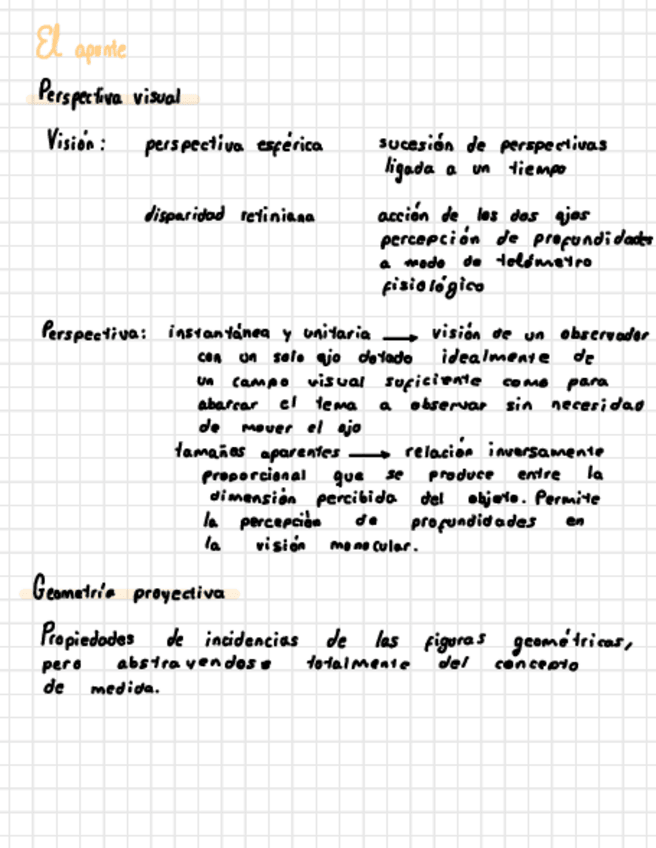 El aponte
Perspectiva visual
Visión: perspectiva esférica sucesión de perspectivas
ligada a un tiempo
disparidad retiniana acción de los dos ojos
percepción de profundidades
a modo de telémetro
fisiológico
Perspectiva: instantánea y unitaria → visión de un observador
con un solo ojo dotado idealmente de
un campo visual suficiente como para
abarcar el tema a observar sin necesidad
de mover el ojo
tamaños aparentes → relación inversamente
proporcional que se produce entre la
dimensión percibida del objeto. Permite
la percepción de profundidades en
la visión monocular.
Geometría proyectiva
Propiedades de incidencias de las figuras geométricas,
pero abstrayendose totalmente del concepto
de medida.